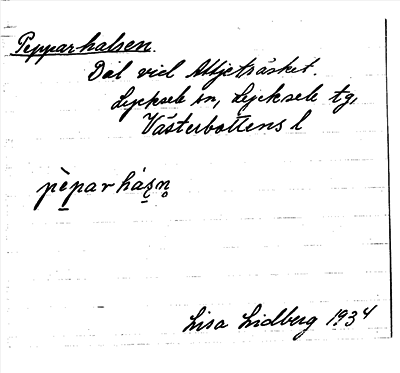 Pepparhalsen.
Dal vid Attjeträsket.
Lycksele sn, Lycksele tg,
Västerbottens l
pèparhás̨n̥
Lisa Lidberg 1934